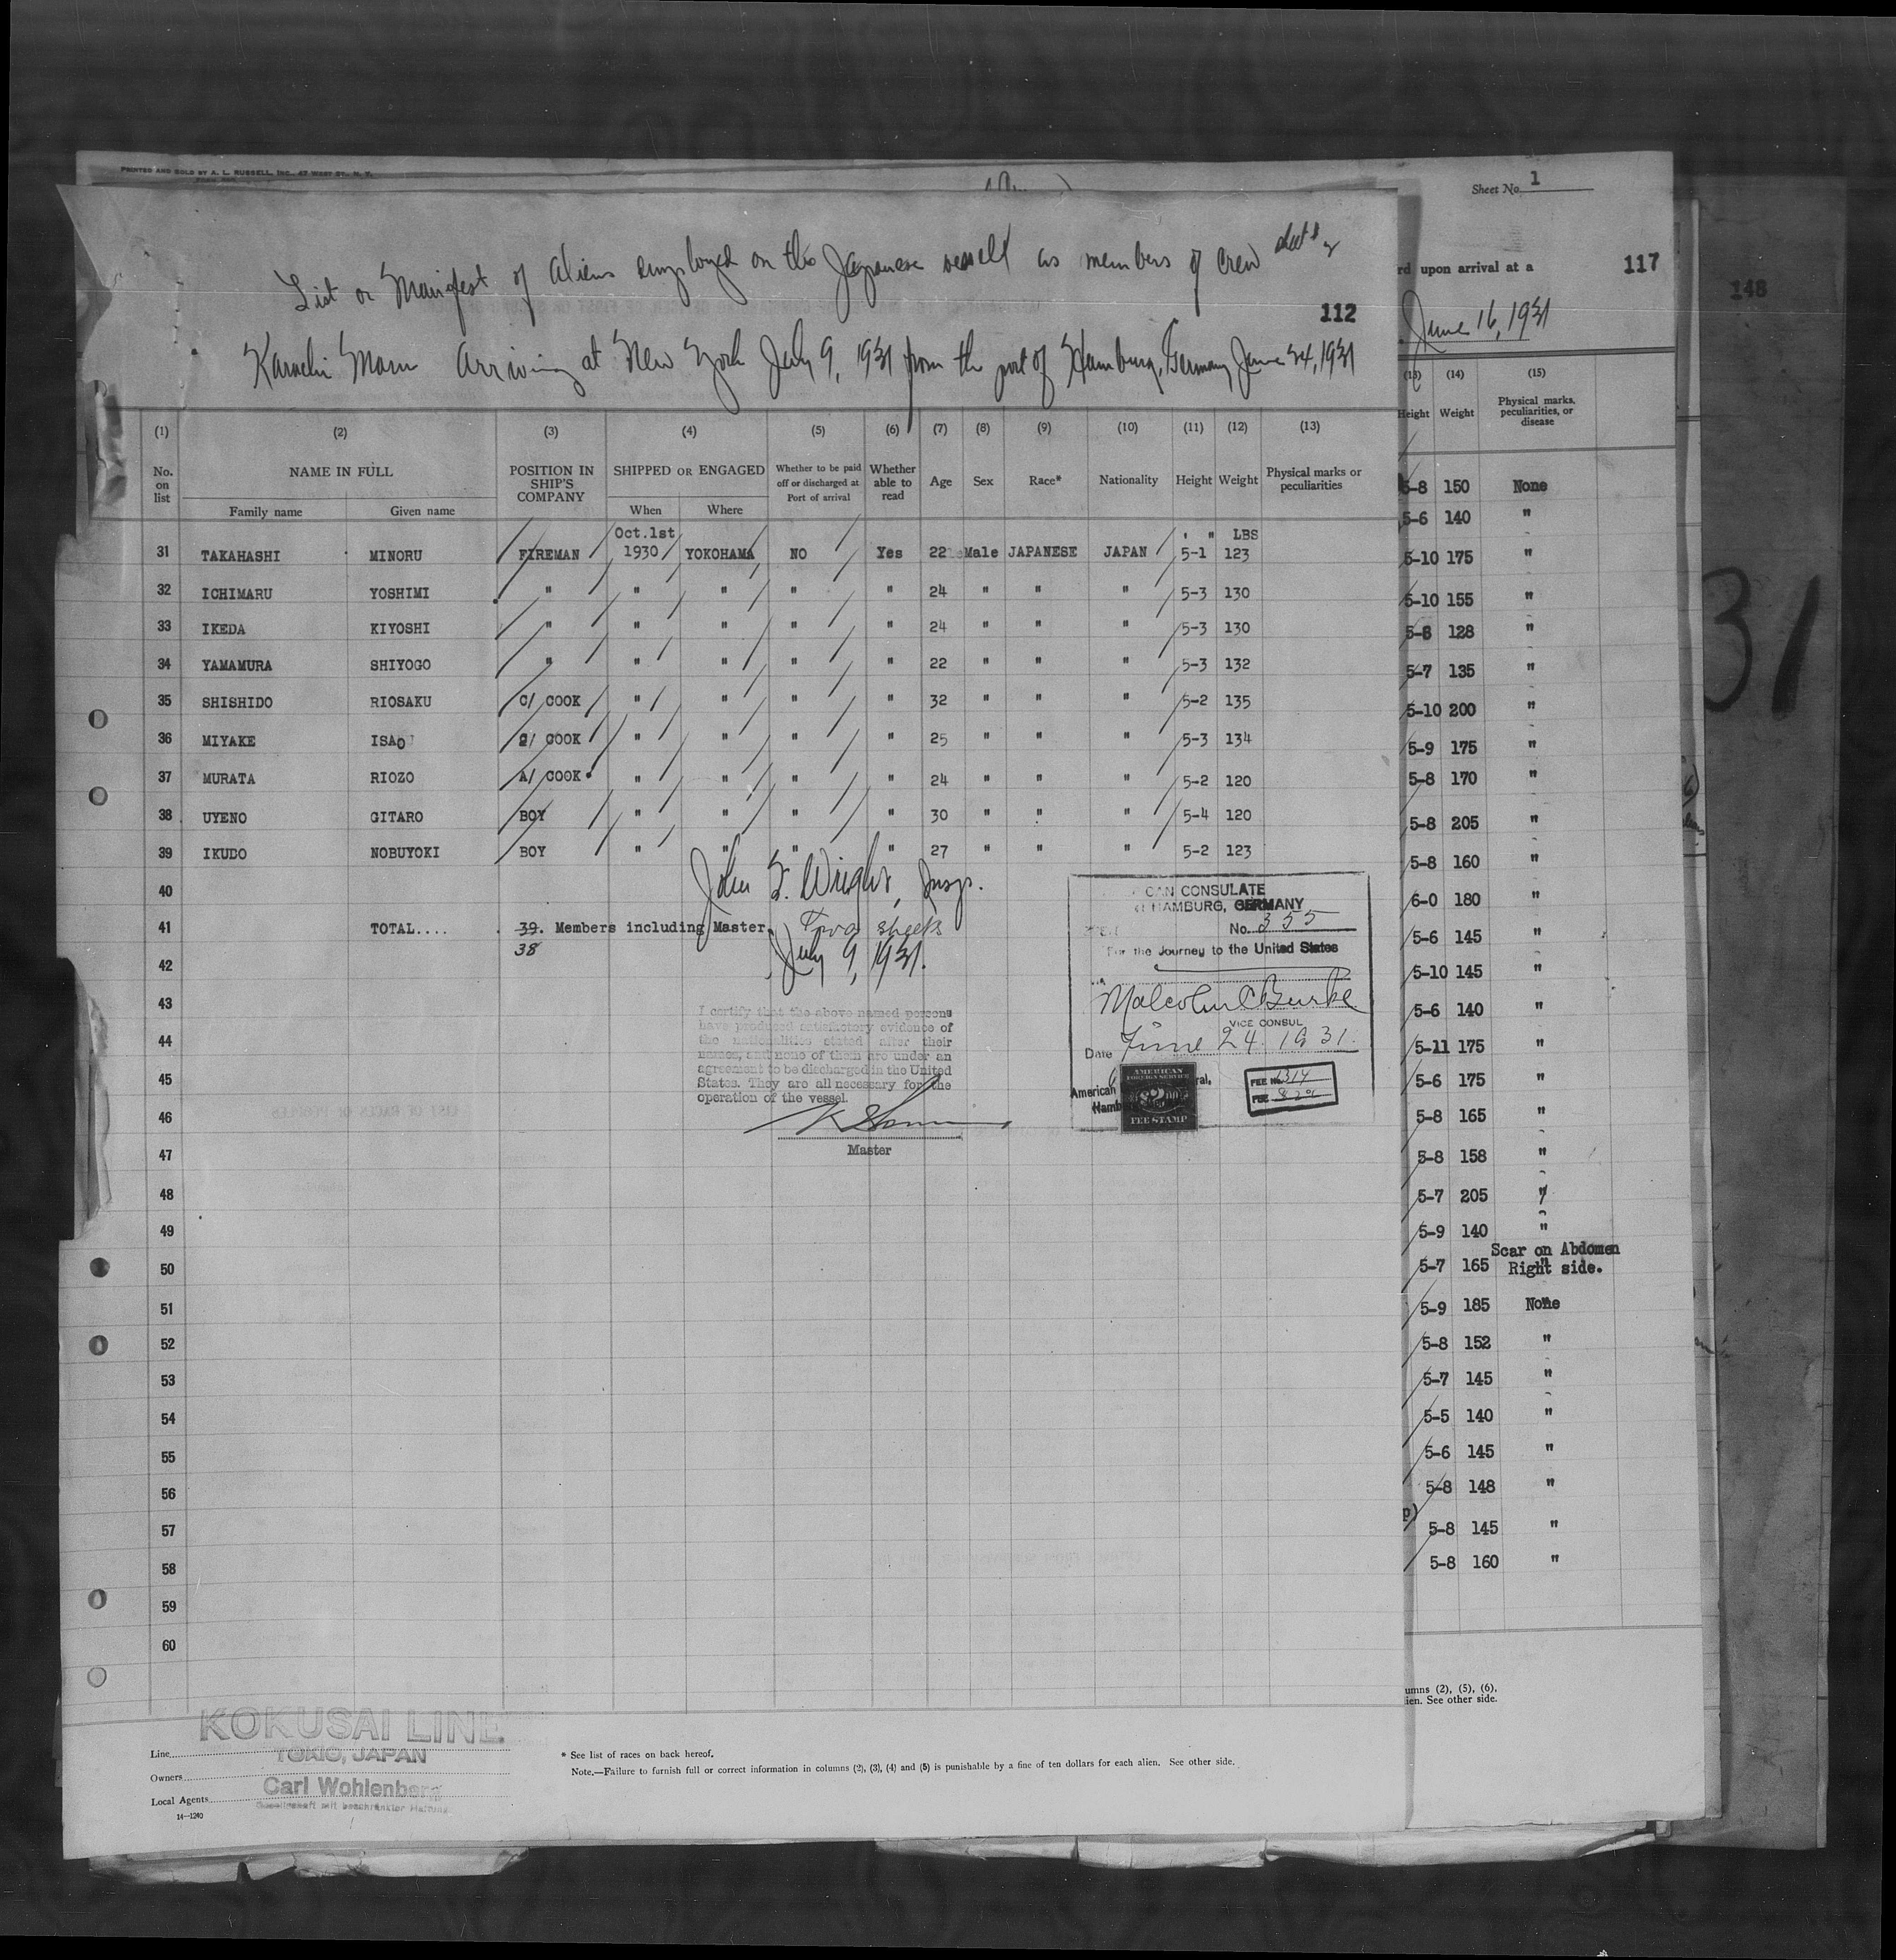 PRINTED AND SOLD BY A. L. RUSSELL, INC., 47 WEST ST., N. Y.
Sheet No. 1
List or Manifest of aliens employed on the Japanese vessel as members of crew sheet 2
112
Karachi Maru Arriving at New York July 9, 1931 from the port of Hamburg, Germany June 24, 1931
rd upon arrival at a
117
148
June 16, 1931
31
(1) (2) (3) (4) (5) (6) (7) (8) (9) (10) (11) (12) (13)
No. on list NAME IN FULL POSITION IN SHIP'S COMPANY SHIPPED OR ENGAGED Whether to be paid off or discharged at Port of arrival Whether able to read Age Sex Race* Nationality Height Weight Physical marks or peculiarities
Family name Given name When Where
Oct.1st ' " LBS
31 TAKAHASHI MINORU FIREMAN 1930 YOKOHAMA NO Yes 22 Male JAPANESE JAPAN 5-1 123
32 ICHIMARU YOSHIMI " " " " " 24 " " " 5-3 130
33 IKEDA KIYOSHI " " " " " 24 " " " 5-3 130
34 YAMAMURA SHIYOGO " " " " " 22 " " " 5-3 132
35 SHISHIDO RIOSAKU C/ COOK " " " " 32 " " " 5-2 135
36 MIYAKE ISAO 2/ COOK " " " " 25 " " " 5-3 134
37 MURATA RIOZO A/ COOK " " " " 24 " " " 5-2 120
38 UYENO GITARO BOY " " " " 30 " " " 5-4 120
39 IKUDO NOBUYOKI BOY " " " " 27 " " " 5-2 123
40
John F. Wright, Insp.
41 TOTAL.... 39. Members including Master. Two sheets
38
July 9, 1931.
42
43
44
45
46
47
48
49
50
51
52
53
54
55
56
57
58
59
60
I certify that the above named persons
have produced satisfactory evidence of
the nationalities stated after their
names, and none of them are under an
agreement to be discharged in the United
States. They are all necessary for the
operation of the vessel.
Master
CAN CONSULATE
HAMBURG, GERMANY
No. 355
For the Journey to the United States
Malcolm C Burke
VICE CONSUL
Date June 24. 1931.
American
Hamb
ral,
AMERICAN
FOREIGN SERVICE
$2
FEE STAMP
FEE No. 1314
FEE
KOKUSAI LINE
Line
TOKIO, JAPAN
Owners
Carl Wohlenberg
Local Agents
Gesellschaft mit beschränkter Haftung
14-1240
* See list of races on back hereof.
Note.—Failure to furnish full or correct information in columns (2), (3), (4) and (5) is punishable by a fine of ten dollars for each alien. See other side.
(13) (14) (15)
Height Weight Physical marks, peculiarities, or disease
5-8 150 None
5-6 140 "
5-10 175 "
5-10 155 "
5-8 128 "
5-7 135 "
5-10 200 "
5-9 175 "
5-8 170 "
5-8 205 "
5-8 160 "
6-0 180 "
5-6 145 "
5-10 145 "
5-6 140 "
5-11 175 "
5-6 175 "
5-8 165 "
5-8 158 "
5-7 205 "
5-9 140 "
Scar on Abdomen
5-7 165 Right side.
5-9 185 None
5-8 152 "
5-7 145 "
5-5 140 "
5-6 145 "
5-8 148 "
p)
5-8 145 "
5-8 160 "
umns (2), (5), (6),
ien. See other side.